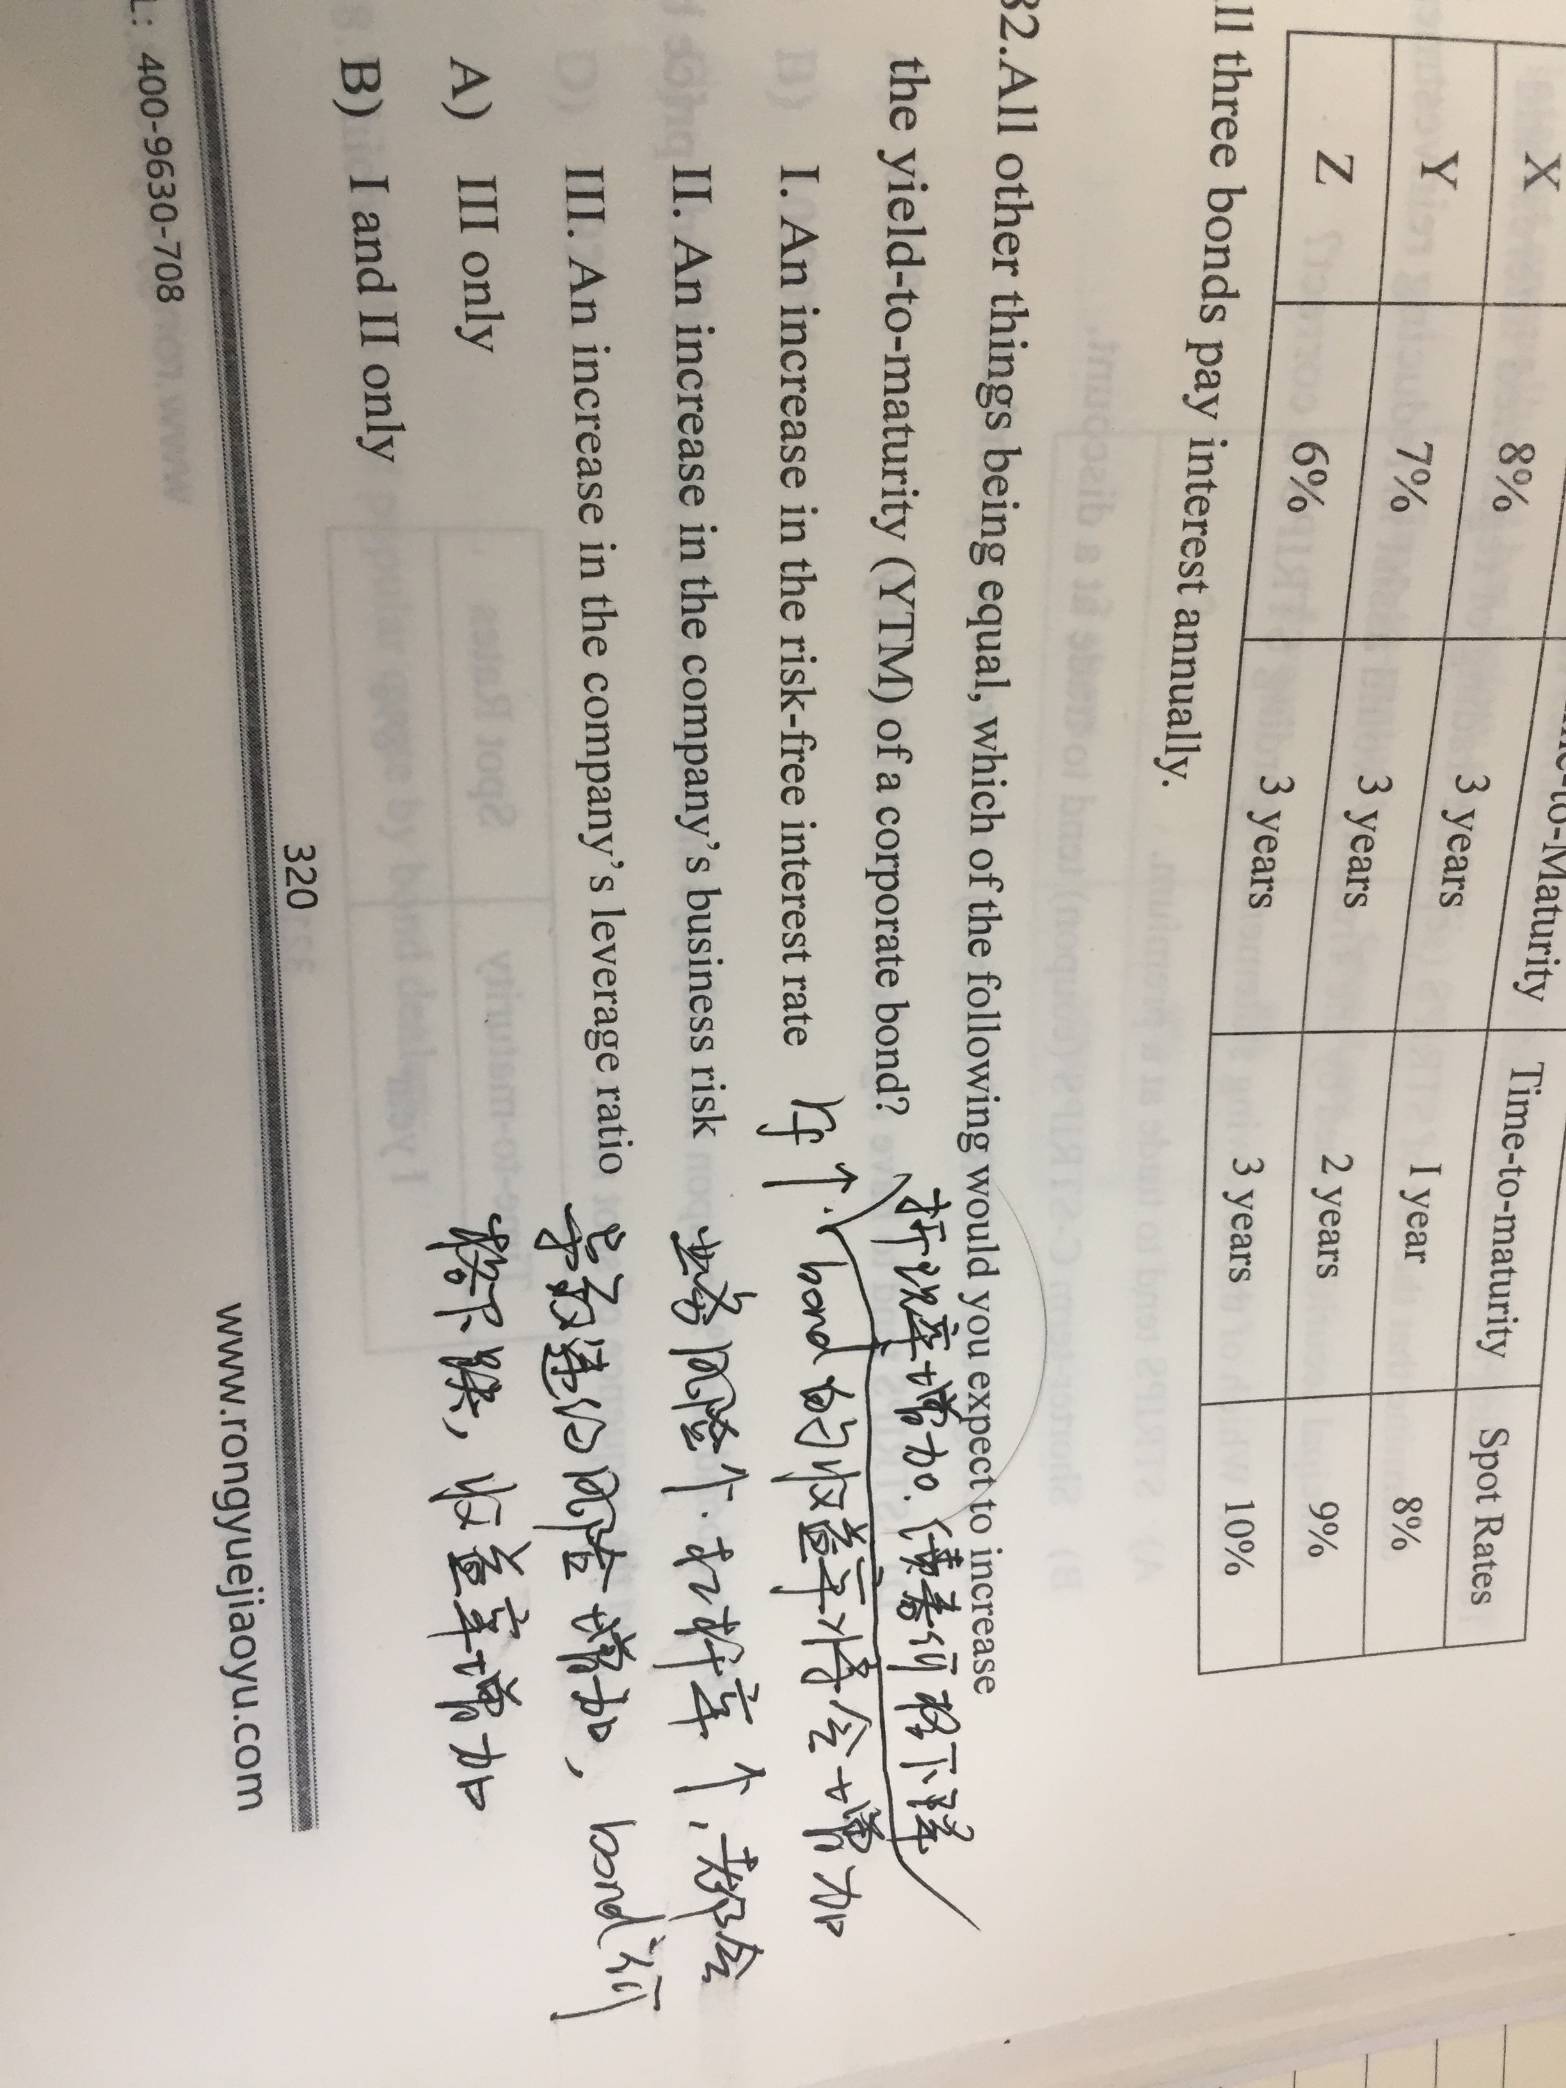 -to-Maturity Time-to-maturity Spot Rates
X 8% 3 years 1 year 8%
Y 7% 3 years 2 years 9%
Z 6% 3 years 3 years 10%
ll three bonds pay interest annually.
32.All other things being equal, which of the following would you expect to increase
the yield-to-maturity (YTM) of a corporate bond?
折现率增加. 债券价格下降
I. An increase in the risk-free interest rate
rf ↑. bond的收益率将会增加
II. An increase in the company's business risk
业务风险个. 杠杆率个, 都会
III. An increase in the company's leverage ratio
导致违约风险增加, bond价
格下跌, 收益率增加
A) III only
B) I and II only
320
L: 400-9630-708
www.rongyuejiaoyu.com